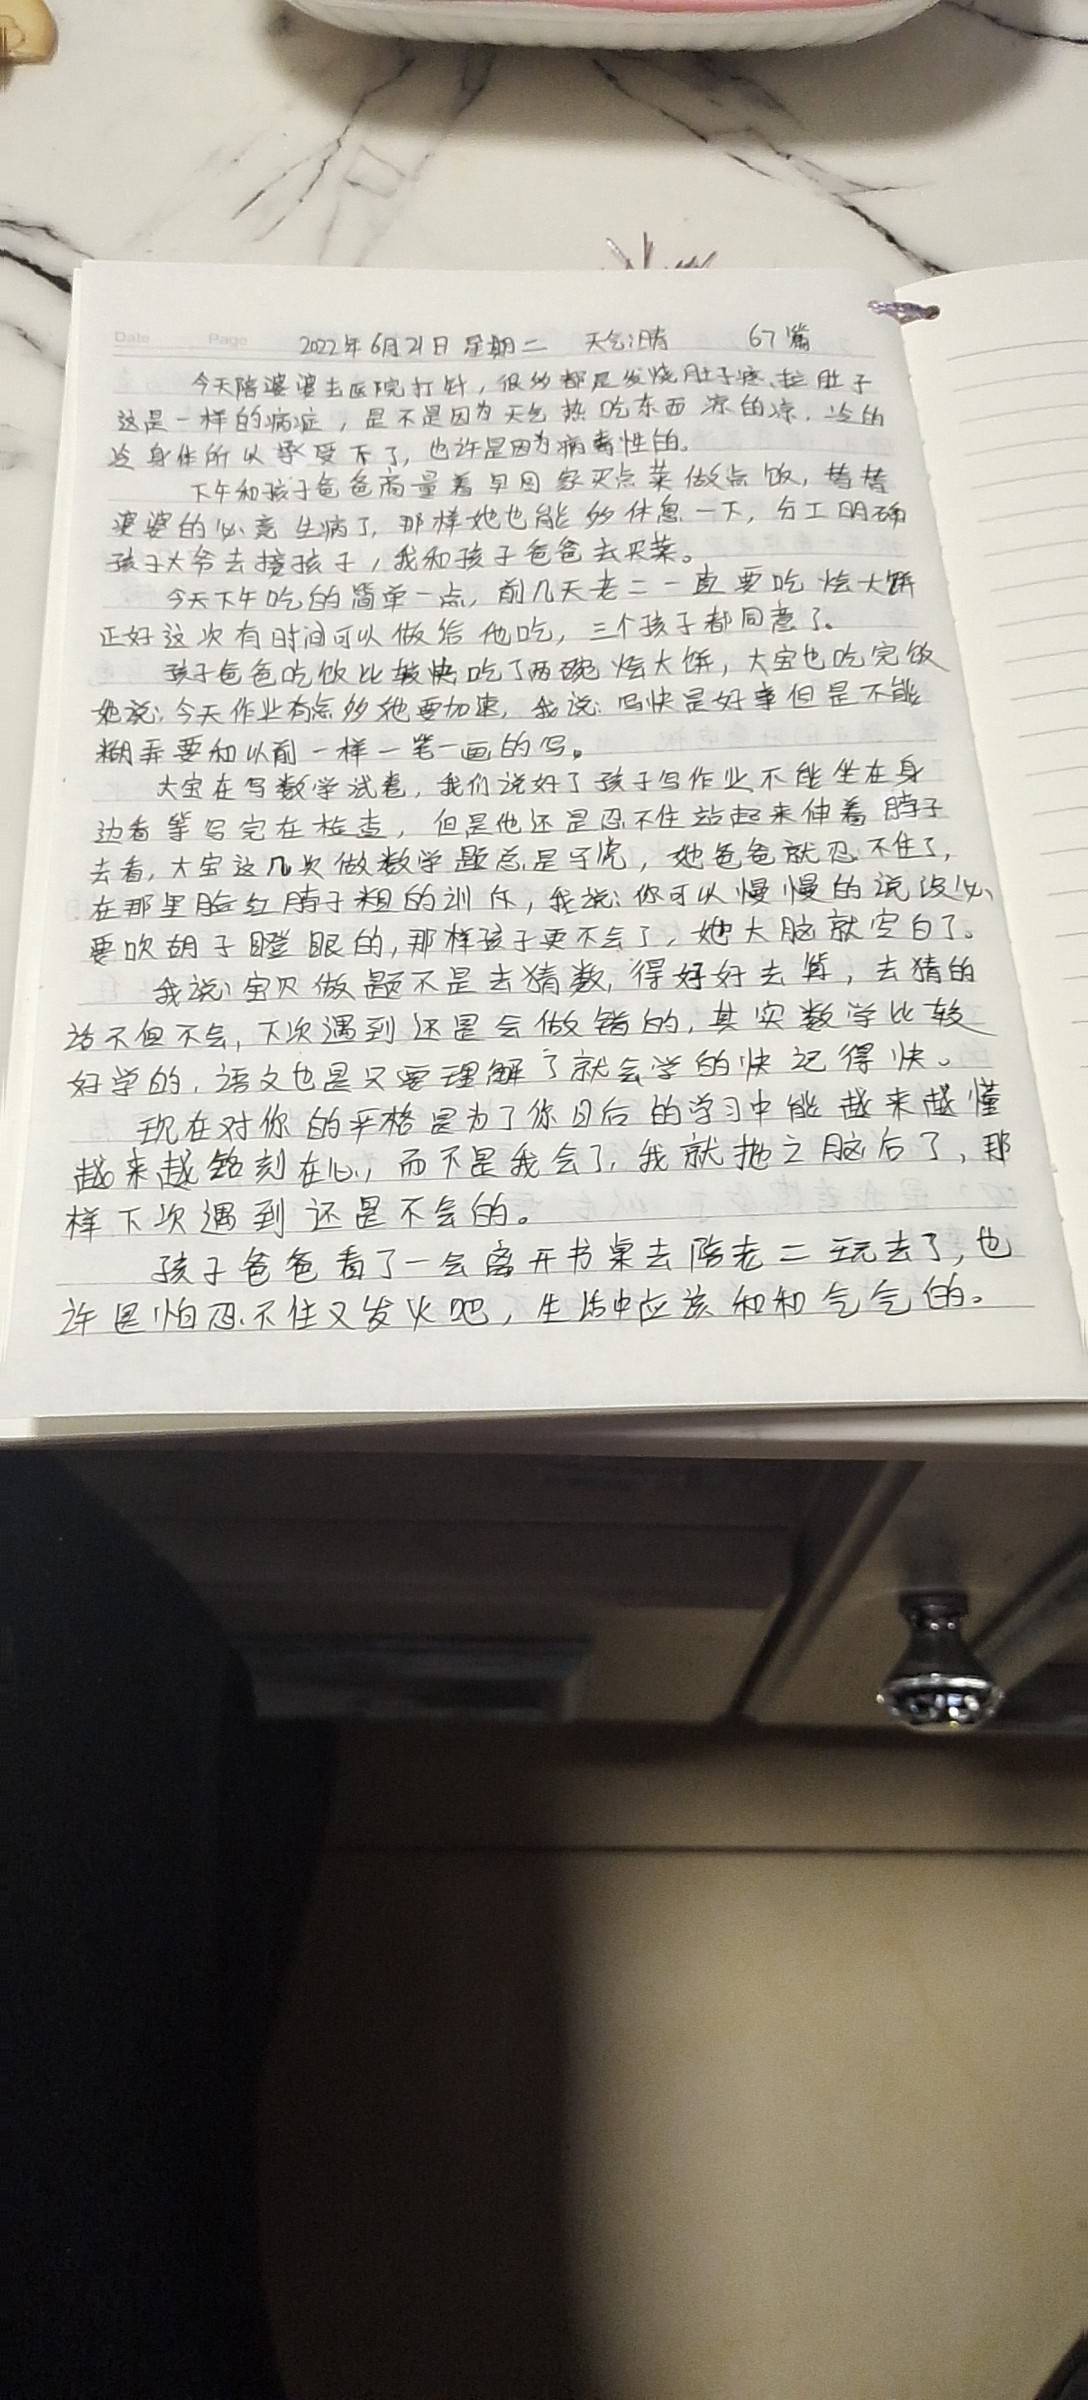 Date Page
2022年6月21日 星期二 天气:晴 67篇
今天陪婆婆去医院打针，很多都是发烧肚子疼、拉肚子
这是一样的病症，是不是因为天气热吃东西凉的凉，冷的
冷身体所以承受不了，也许是因为病毒性的。
下午和孩子爸爸商量着早回家买点菜做点饭，替替
婆婆的必竟生病了，那样她也能多休息一下，分工明确
孩子大爷去接孩子，我和孩子爸爸去买菜。
今天下午吃的简单一点，前几天老二一直要吃烩大饼
正好这次有时间可以做给他吃，三个孩子都同意了。
孩子爸爸吃饭比较快吃了两碗烩大饼，大宝也吃完饭
她说：今天作业有点多她要加速，我说：写快是好事但是不能
糊弄要和以前一样一笔一画的写。
大宝在写数学试卷，我们说好了孩子写作业不能坐在身
边看等写完在检查，但是他还是忍不住站起来伸着脖子
去看，大宝这几次做数学题总是马虎，她爸爸就忍不住了，
在那里脸红脖子粗的训斥，我说：你可以慢慢的说没必
要吹胡子瞪眼的，那样孩子更不会了，她大脑就空白了。
我说：宝贝做题不是去猜数，得好好去算，去猜的
话不但不会，下次遇到还是会做错的，其实数学比较
好学的，语文也是只要理解了就会学的快记得快。
现在对你的严格是为了你日后的学习中能越来越懂
越来越铭刻在心，而不是我会了，我就抛之脑后了，那
样下次遇到还是不会的。
孩子爸爸看了一会离开书桌去陪老二玩去了，也
许是怕忍不住又发火吧，生活中应该和和气气的。